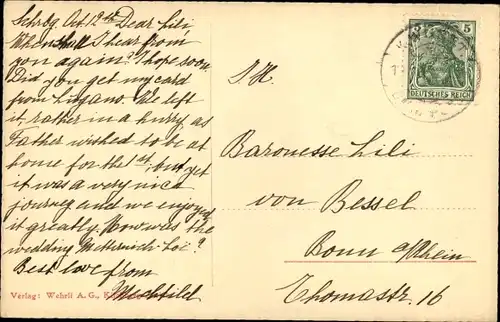 Schbg Oct. 12th Dear Lili
When shall I hear from
you again? I hope soon.
Did you get my card
from Lugano. We left
it, rather in a hurry, as
Father wished to be at
home for the 1st, but yet
it was a very nice
journey and we enjoyed
it greatly. How was the
wedding Metternich-Loë?
Best love from
Mechtild
Verlag: Wehrli A. G.,
5
DEUTSCHES REICH
Baronesse Lili
von Bessel
Bonn a/Rhein
Thomastr. 16